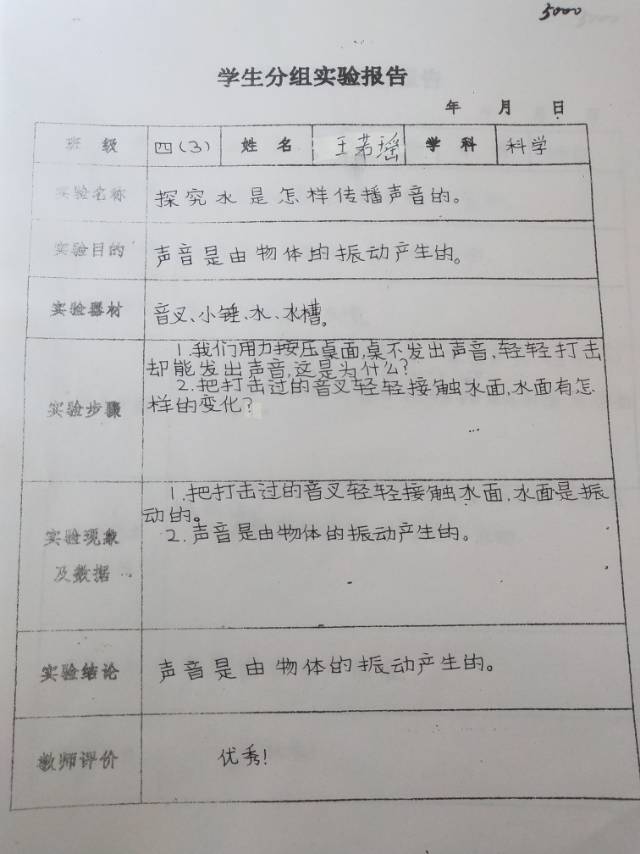 5000
学生分组实验报告
年 月 日
班 级 四(3) 姓 名 王若瑶 学 科 科学
实验名称 探究水是怎样传播声音的。
实验目的 声音是由物体的振动产生的。
实验器材 音叉、小锤、水、水槽。
1.我们用力按压桌面,桌不发出声音,轻轻打击
却能发出声音,这是为什么?
2.把打击过的音叉轻轻接触水面,水面有怎
样的变化?
实验步骤
1.把打击过的音叉轻轻接触水面,水面是振
动的。
2.声音是由物体的振动产生的。
实验现象
及数据
实验结论 声音是由物体的振动产生的。
教师评价 优秀!